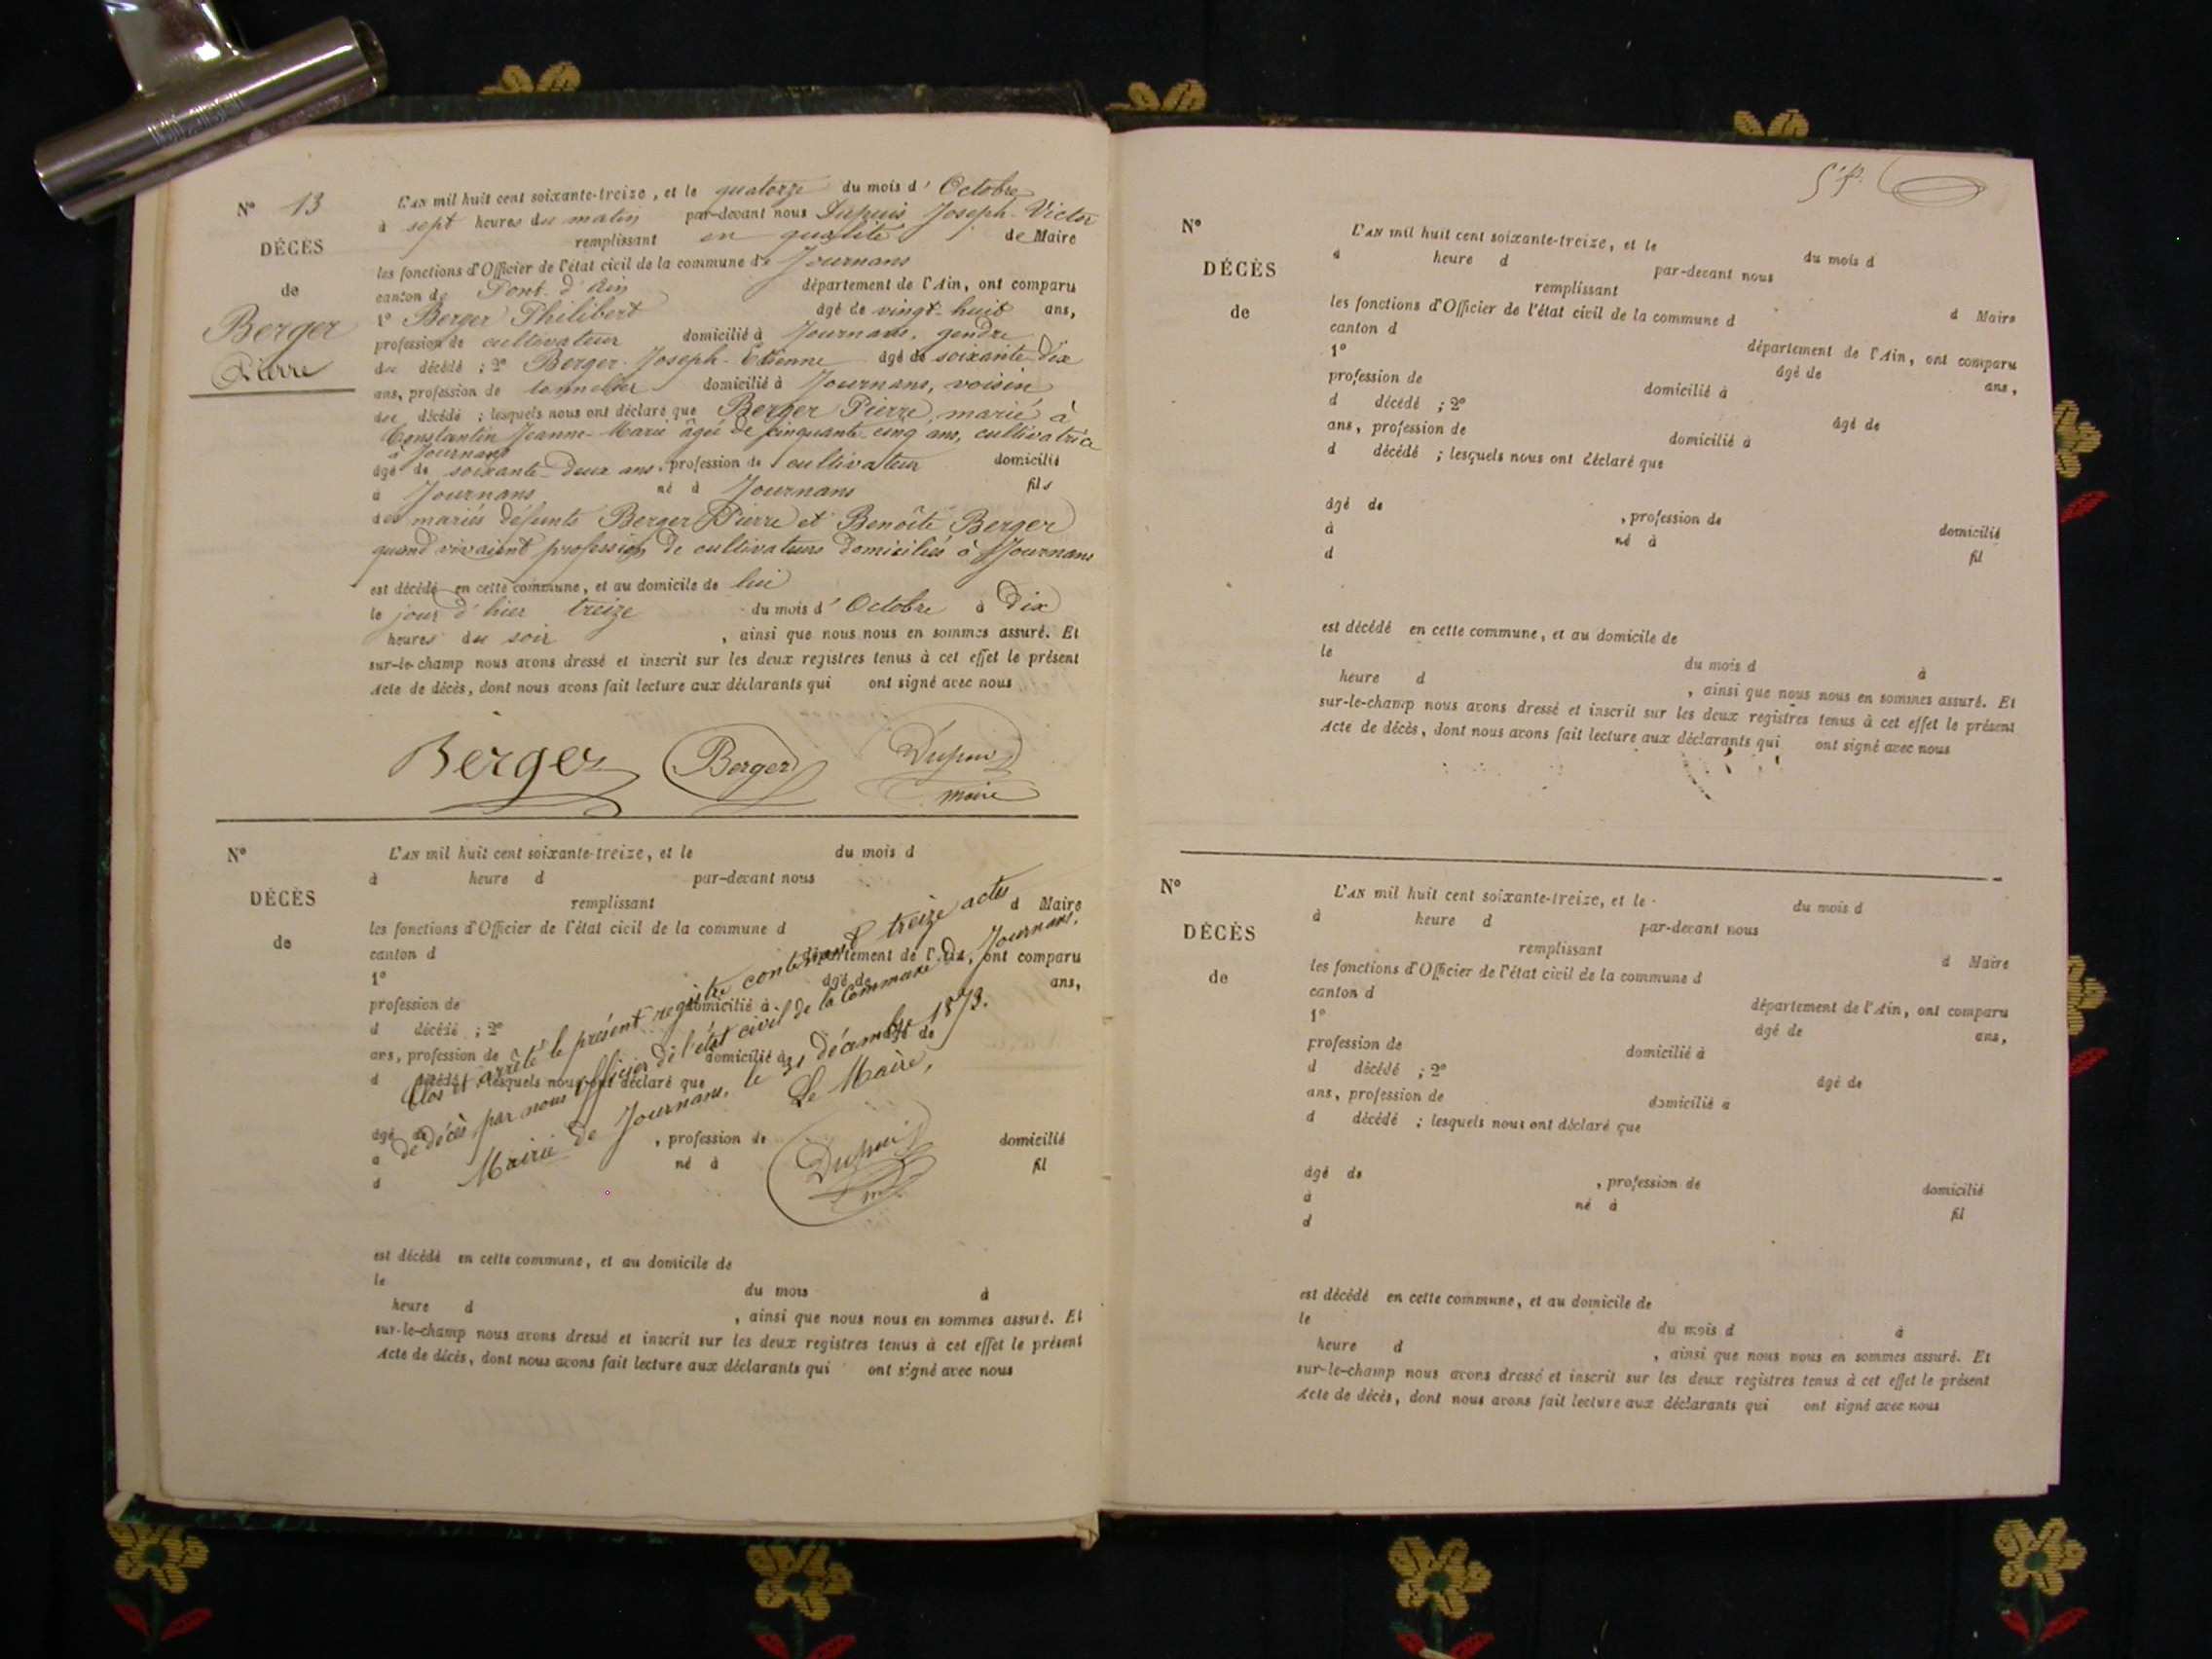 N° 13
DÉCÈS
de
Berger
Pierre
L'AN mil huit cent soixante-treize, et le quatorze du mois d' Octobre
à sept heures du matin par-devant nous Dupuis Joseph-Victor
remplissant en qualité de Maire
les fonctions d'Officier de l'état civil de la commune de Journans
canton de Pont-d'Ain département de l'Ain, ont comparu
1° Berger Philibert âgé de vingt-huit ans,
profession de cultivateur domicilié à Journans, gendre
du décédé ; 2° Berger Joseph-Etienne âgé de soixante-dix
ans, profession de tonnelier domicilié à Journans, voisin
du décédé ; lesquels nous ont déclaré que Berger Pierre, marié à
Constantin Jeanne-Marie âgée de cinquante-cinq ans, cultivatrice
à Journans
âgé de soixante-deux ans, profession de cultivateur domicilié
à Journans né à Journans fils
des mariés défunts Berger Pierre et Benoîte Berger
quand vivaient profession de cultivateurs domiciliés à Journans
est décédé en cette commune, et au domicile de lui
le jour d'hier treize du mois d' Octobre à Dix
heures du soir, ainsi que nous nous en sommes assuré. Et
sur-le-champ nous avons dressé et inscrit sur les deux registres tenus à cet effet le présent
Acte de décès, dont nous avons fait lecture aux déclarants qui ont signé avec nous
Berger Berger Dupuis
maire
N°
DÉCÈS
de
L'AN mil huit cent soixante-treize, et le du mois d
à heure d par-devant nous
remplissant d Maire
les fonctions d'Officier de l'état civil de la commune d
canton d département de l'Ain, ont comparu
1° âgé de ans,
profession de domicilié à
d décédé ; 2° âgé de
ans, profession de domicilié à
d décédé ; lesquels nous ont déclaré que
âgé de , profession de domicilié
à né à fil
d
Clos et arrêté le présent registre contenant treize actes
de décès par nous officier de l'état civil de la Commune de Journans.
Mairie de Journans, le 31 décembre 1873.
Le Maire,
Dupuis
est décédé en cette commune, et au domicile de
le du mois à
heure d , ainsi que nous nous en sommes assuré. Et
sur-le-champ nous avons dressé et inscrit sur les deux registres tenus à cet effet le présent
Acte de décès, dont nous avons fait lecture aux déclarants qui ont signé avec nous
N°
DÉCÈS
de
L'AN mil huit cent soixante-treize, et le du mois d
à heure d par-devant nous
remplissant d Maire
les fonctions d'Officier de l'état civil de la commune d
canton d département de l'Ain, ont comparu
1° âgé de ans,
profession de domicilié à
d décédé ; 2° âgé de
ans, profession de domicilié à
d décédé ; lesquels nous ont déclaré que
âgé de , profession de domicilié
à né à fil
d
est décédé en cette commune, et au domicile de
le du mois d à
heure d , ainsi que nous nous en sommes assuré. Et
sur-le-champ nous avons dressé et inscrit sur les deux registres tenus à cet effet le présent
Acte de décès, dont nous avons fait lecture aux déclarants qui ont signé avec nous
N°
DÉCÈS
de
L'AN mil huit cent soixante-treize, et le du mois d
à heure d par-devant nous
remplissant d Maire
les fonctions d'Officier de l'état civil de la commune d
canton d département de l'Ain, ont comparu
1° âgé de ans,
profession de domicilié à
d décédé ; 2° âgé de
ans, profession de domicilié à
d décédé ; lesquels nous ont déclaré que
âgé de , profession de domicilié
à né à fil
d
est décédé en cette commune, et au domicile de
le du mois d à
heure d , ainsi que nous nous en sommes assuré. Et
sur-le-champ nous avons dressé et inscrit sur les deux registres tenus à cet effet le présent
Acte de décès, dont nous avons fait lecture aux déclarants qui ont signé avec nous